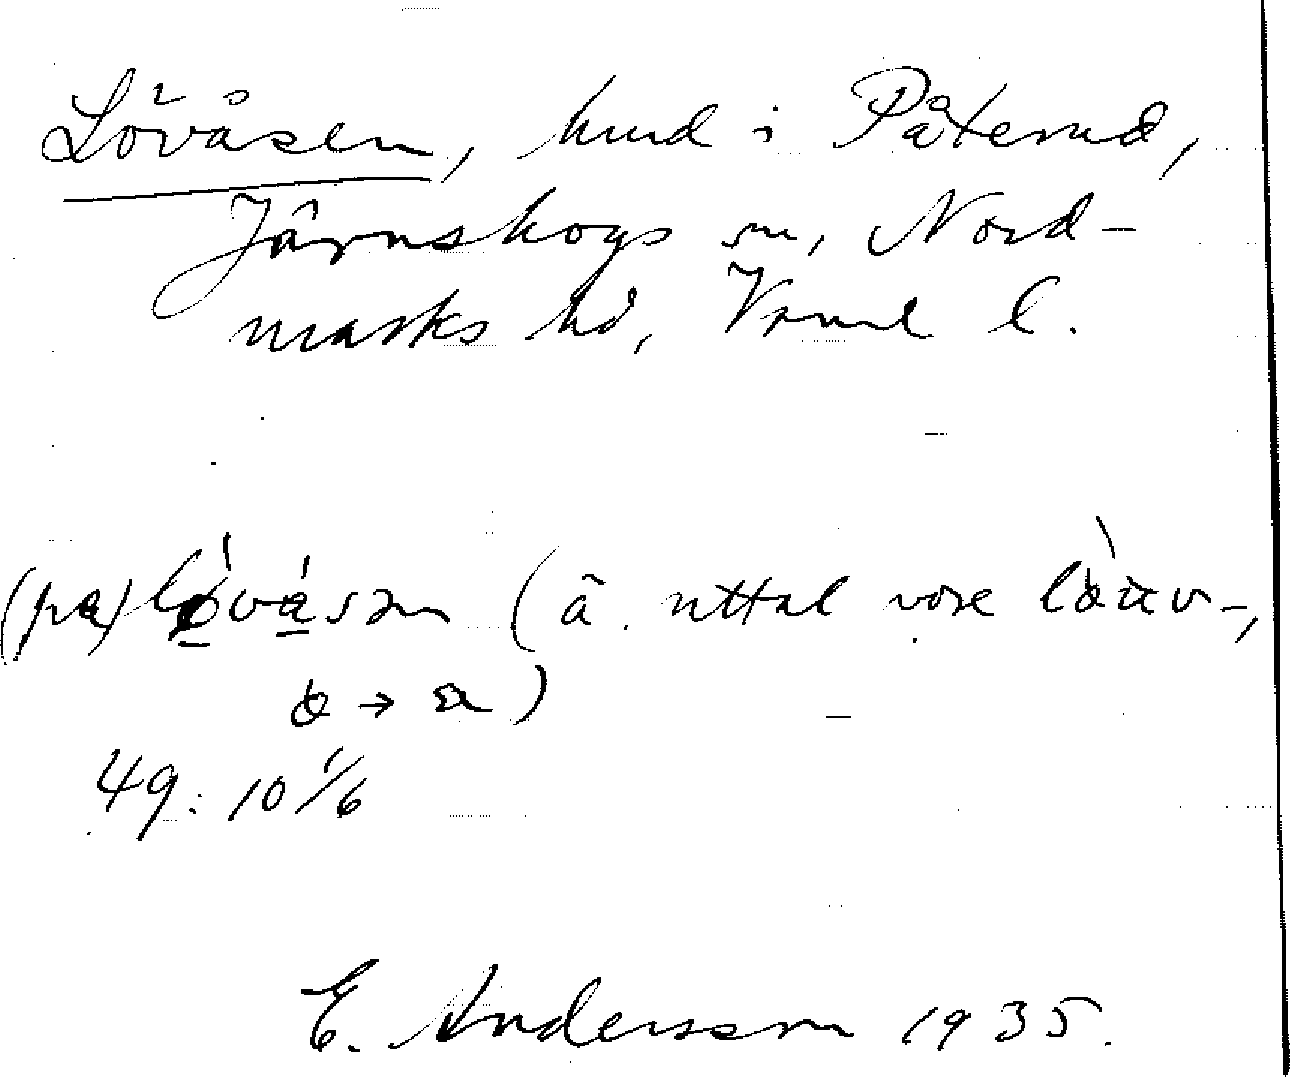 Lövåsen, hmd i Påterud,
Järnskogs sn, Nord-
marks hd, Värml l.
(pa) lø̀vásən (ä. uttal vore
→
49: 10 1/6
E. Andersson 1935.